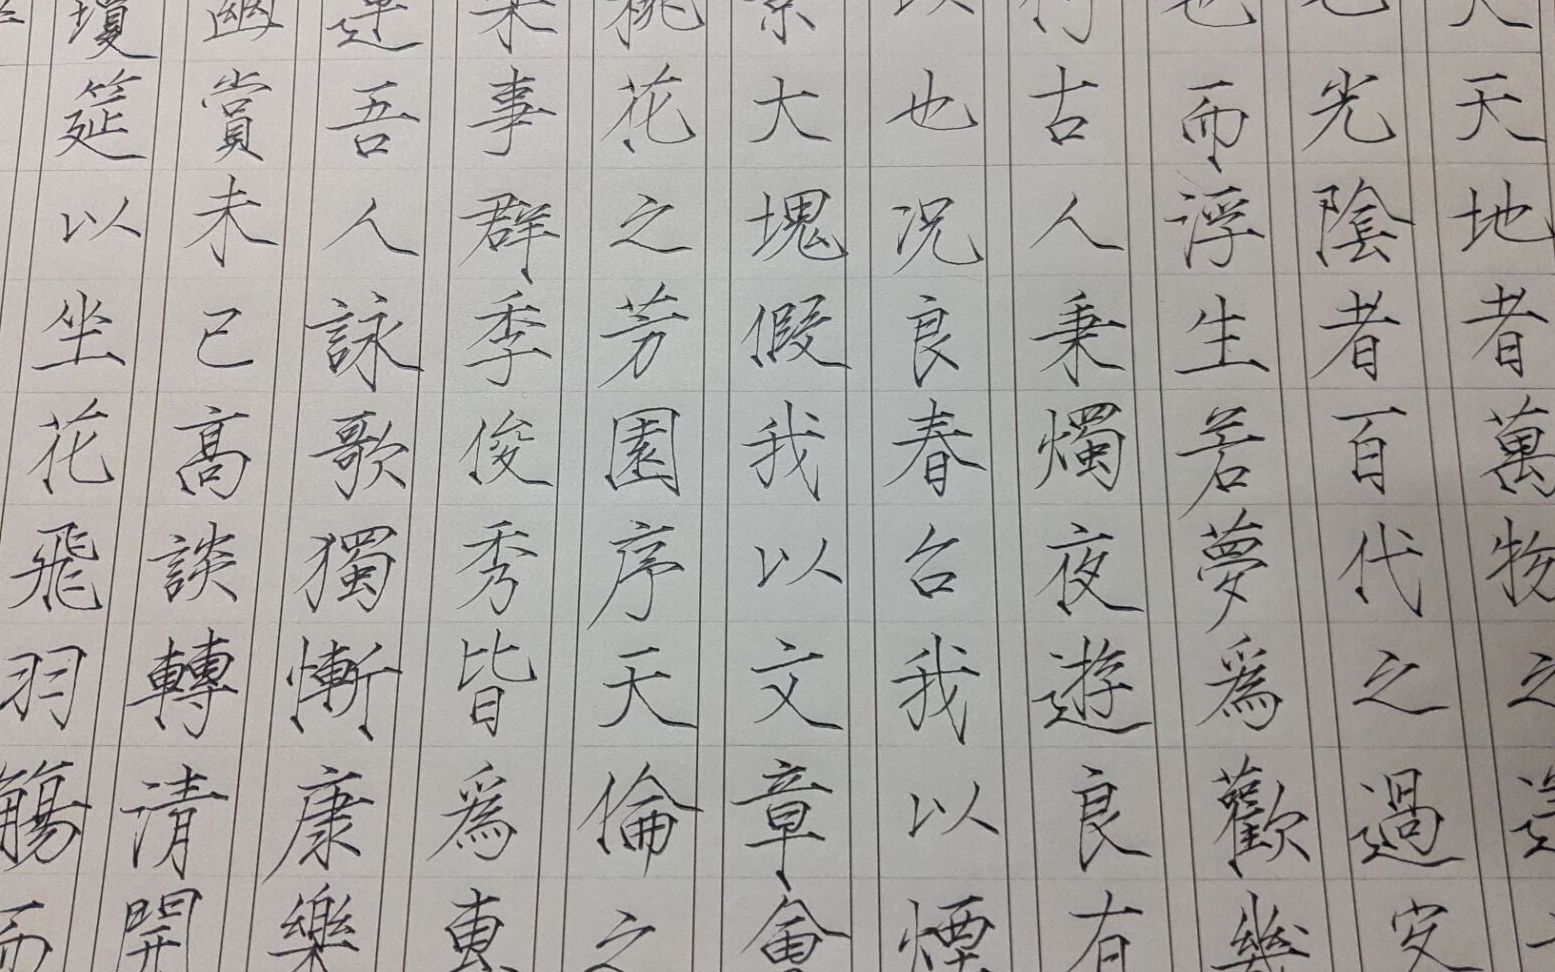 夫天地者萬物之逆
也光陰者百代之過客
也而浮生若夢爲歡幾
何古人秉燭夜遊良有
以也况良春召我以煙
景大塊假我以文章會
桃花之芳園序天倫之
樂事群季俊秀皆爲惠
連吾人詠歌獨慚康樂
幽賞未已高談轉清開
瓊筵以坐花飛羽觴而